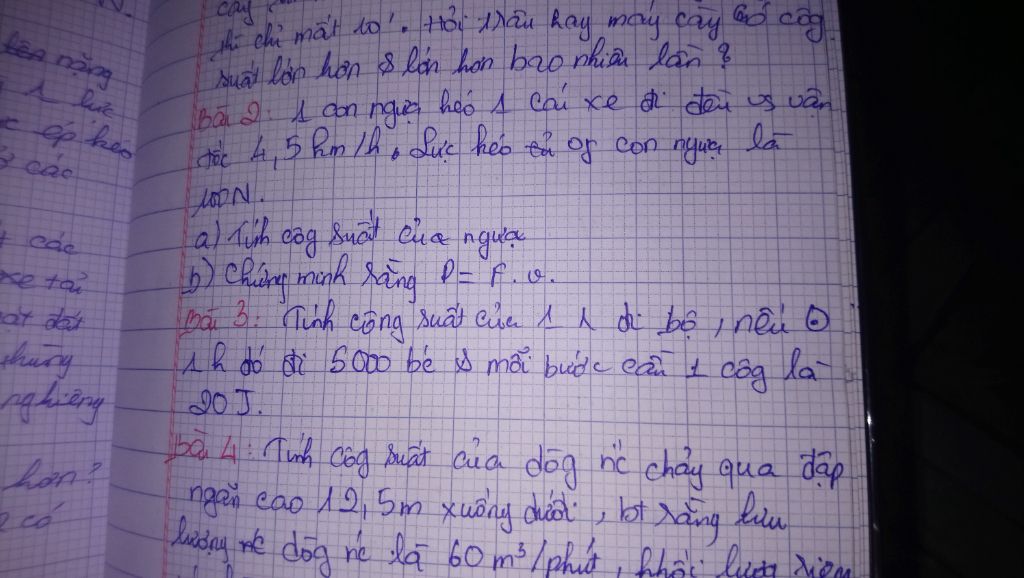 nặng
1 lực
ép kéo
các
các
xe tải
mặt đất
thùng
nghiêng
hơn?
có
thì chỉ mất 20'. Hỏi trâu hay máy cày có côg
suất lớn hơn & lớn hơn bao nhiêu lần?
Bài 2: 1 con ngựa kéo 1 cái xe đi đều vs vận
tốc 4,5 km/h. Lực kéo of con ngựa là
100N.
a) Tính côg suất của ngựa
b) Chứng minh rằng P = F.v.
Bài 3: Tính công suất của 1 ng đi bộ, nếu
1h đó đi 5000 bc & mỗi bước cần 1 côg là
20 J.
Bài 4: Tính côg suất của dòg nc chảy qua đập
ngăn cao 12,5m xuống dưới, bt rằng lưu
lượng dòg nc là 60 m³/phút, khối lượng riêng